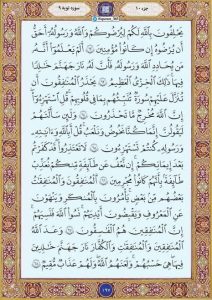 جزء ۱۰
سوره توبه ۹
یَحۡلِفُونَ بِٱللَّهِ لَكُمۡ لِيُرۡضُوكُمۡ وَٱللَّهُ وَرَسُولُهُۥٓ أَحَقُّ
أَن يُرۡضُوهُ إِن كَانُواْ مُؤۡمِنِينَ ٦٢ أَلَمۡ يَعۡلَمُوٓاْ أَنَّهُۥ
مَن يُحَادِدِ ٱللَّهَ وَرَسُولَهُۥ فَأَنَّ لَهُۥ نَارَ جَهَنَّمَ خَٰلِدٗا
فِيهَاۚ ذَٰلِكَ ٱلۡخِزۡيُ ٱلۡعَظِيمُ ٦٣ يَحۡذَرُ ٱلۡمُنَٰفِقُونَ أَن
تُنَزَّلَ عَلَيۡهِمۡ سُورَةٞ تُنَبِّئُهُم بِمَا فِي قُلُوبِهِمۡۚ قُلِ ٱسۡتَهۡزِءُوٓاْ
إِنَّ ٱللَّهَ مُخۡرِجٞ مَّا تَحۡذَرُونَ ٦٤ وَلَئِن سَأَلۡتَهُمۡ
لَيَقُولُنَّ إِنَّمَا كُنَّا نَخُوضُ وَنَلۡعَبُۚ قُلۡ أَبِٱللَّهِ وَءَايَٰتِهِۦ
وَرَسُولِهِۦ كُنتُمۡ تَسۡتَهۡزِءُونَ ٦٥ لَا تَعۡتَذِرُواْ قَدۡ كَفَرۡتُم
بَعۡدَ إِيمَٰنِكُمۡۚ إِن نَّعۡفُ عَن طَآئِفَةٖ مِّنكُمۡ نُعَذِّبۡ
طَآئِفَةَۢ بِأَنَّهُمۡ كَانُواْ مُجۡرِمِينَ ٦٦ ٱلۡمُنَٰفِقُونَ وَٱلۡمُنَٰفِقَٰتُ
بَعۡضُهُم مِّنۢ بَعۡضٖۚ يَأۡمُرُونَ بِٱلۡمُنكَرِ وَيَنۡهَوۡنَ
عَنِ ٱلۡمَعۡرُوفِ وَيَقۡبِضُونَ أَيۡدِيَهُمۡۚ نَسُواْ ٱللَّهَ فَنَسِيَهُمۡۚ
إِنَّ ٱلۡمُنَٰفِقِينَ هُمُ ٱلۡفَٰسِقُونَ ٦٧ وَعَدَ ٱللَّهُ
ٱلۡمُنَٰفِقِينَ وَٱلۡمُنَٰفِقَٰتِ وَٱلۡكُفَّارَ نَارَ جَهَنَّمَ خَٰلِدِينَ
فِيهَاۚ هِيَ حَسۡبُهُمۡۚ وَلَعَنَهُمُ ٱللَّهُۖ وَلَهُمۡ عَذَابٞ مُّقِيمٞ ٦٨
۱۹۷